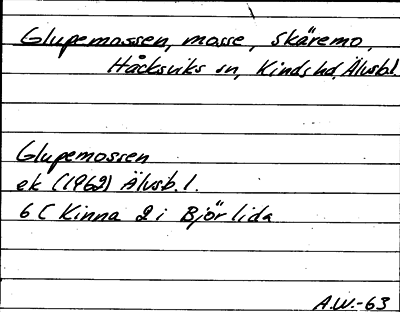 Glupemossen, mosse, Skäremo,
Håcksviks sn, Kinds hd, Älvsb.l.
Glupemossen
ek (1962) Älvsb.l.
6 C Kinna 2 i Björlida
A.W.-63